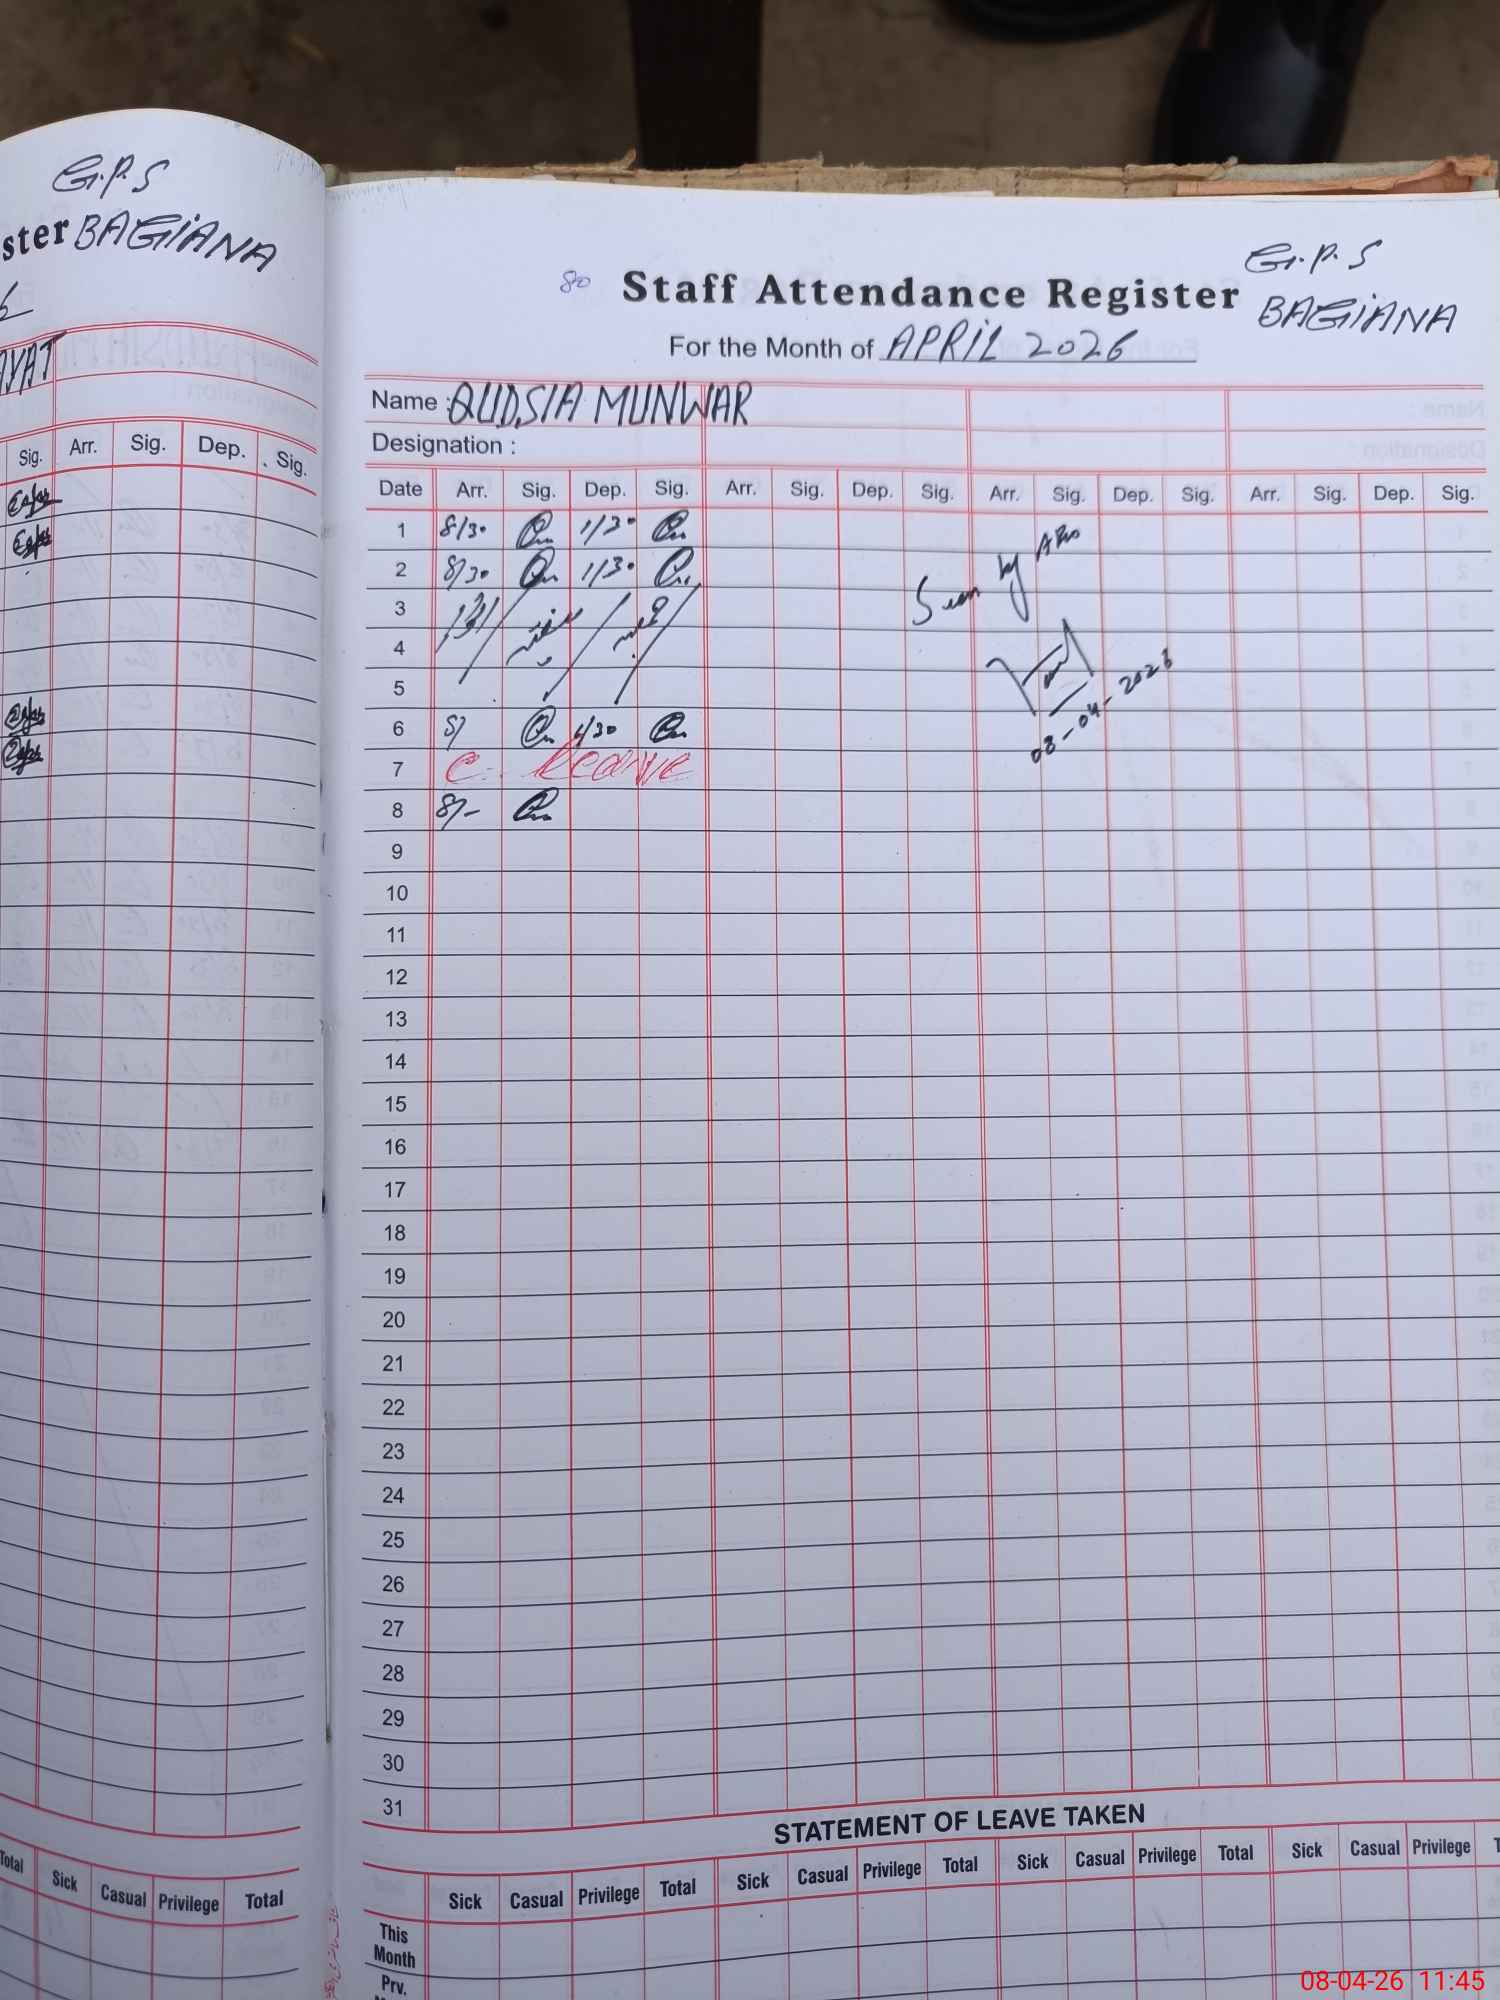 G.P.S
ster BAGIANA
AYAT
Sig. Arr. Sig. Dep. Sig.
Total Sick Casual Privilege Total
80 Staff Attendance Register G.P.S
BAGIANA
For the Month of APRIL 2026
Name : QUDSIA MUNWAR
Designation :
Date Arr. Sig. Dep. Sig. Arr. Sig. Dep. Sig. Arr. Sig. Dep. Sig. Arr. Sig. Dep. Sig.
1 8/30 1/30
2 8/30 1/30
Seen by
3
4
5
08-04-2026
6 8/ 1/30
7 C. Leave
8 8/-
9
10
11
12
13
14
15
16
17
18
19
20
21
22
23
24
25
26
27
28
29
30
31
STATEMENT OF LEAVE TAKEN
Sick Casual Privilege Total Sick Casual Privilege Total Sick Casual Privilege Total Sick Casual Privilege
This
Month
Prv.
08-04-26 11:45